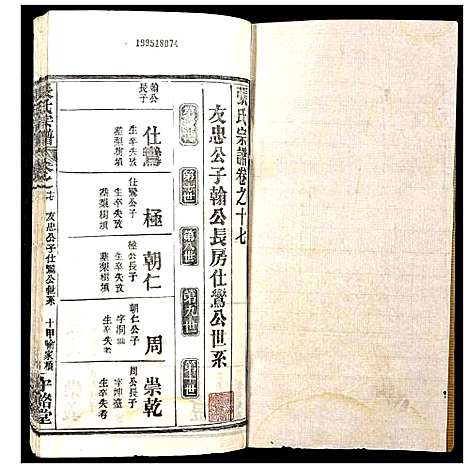 199518074
張氏宗譜卷之十七
友忠公子翰公長房仕鸞公世系
第六世
第七世
第八世
第九世
第十世
翰公長子
仕鸞
生卒失攷
葬梨樹墳
仕鸞公長子
極
生卒失攷
葬梨樹墳
極公長子
朝仁
生卒失攷
葬梨樹墳
朝仁公子
周
字洞
生卒失考
周公長子
崇乾
字坤
生卒失考
張氏宗譜
卷之十七
友忠公子仕鸞公世系
十甲喻家橋
堂